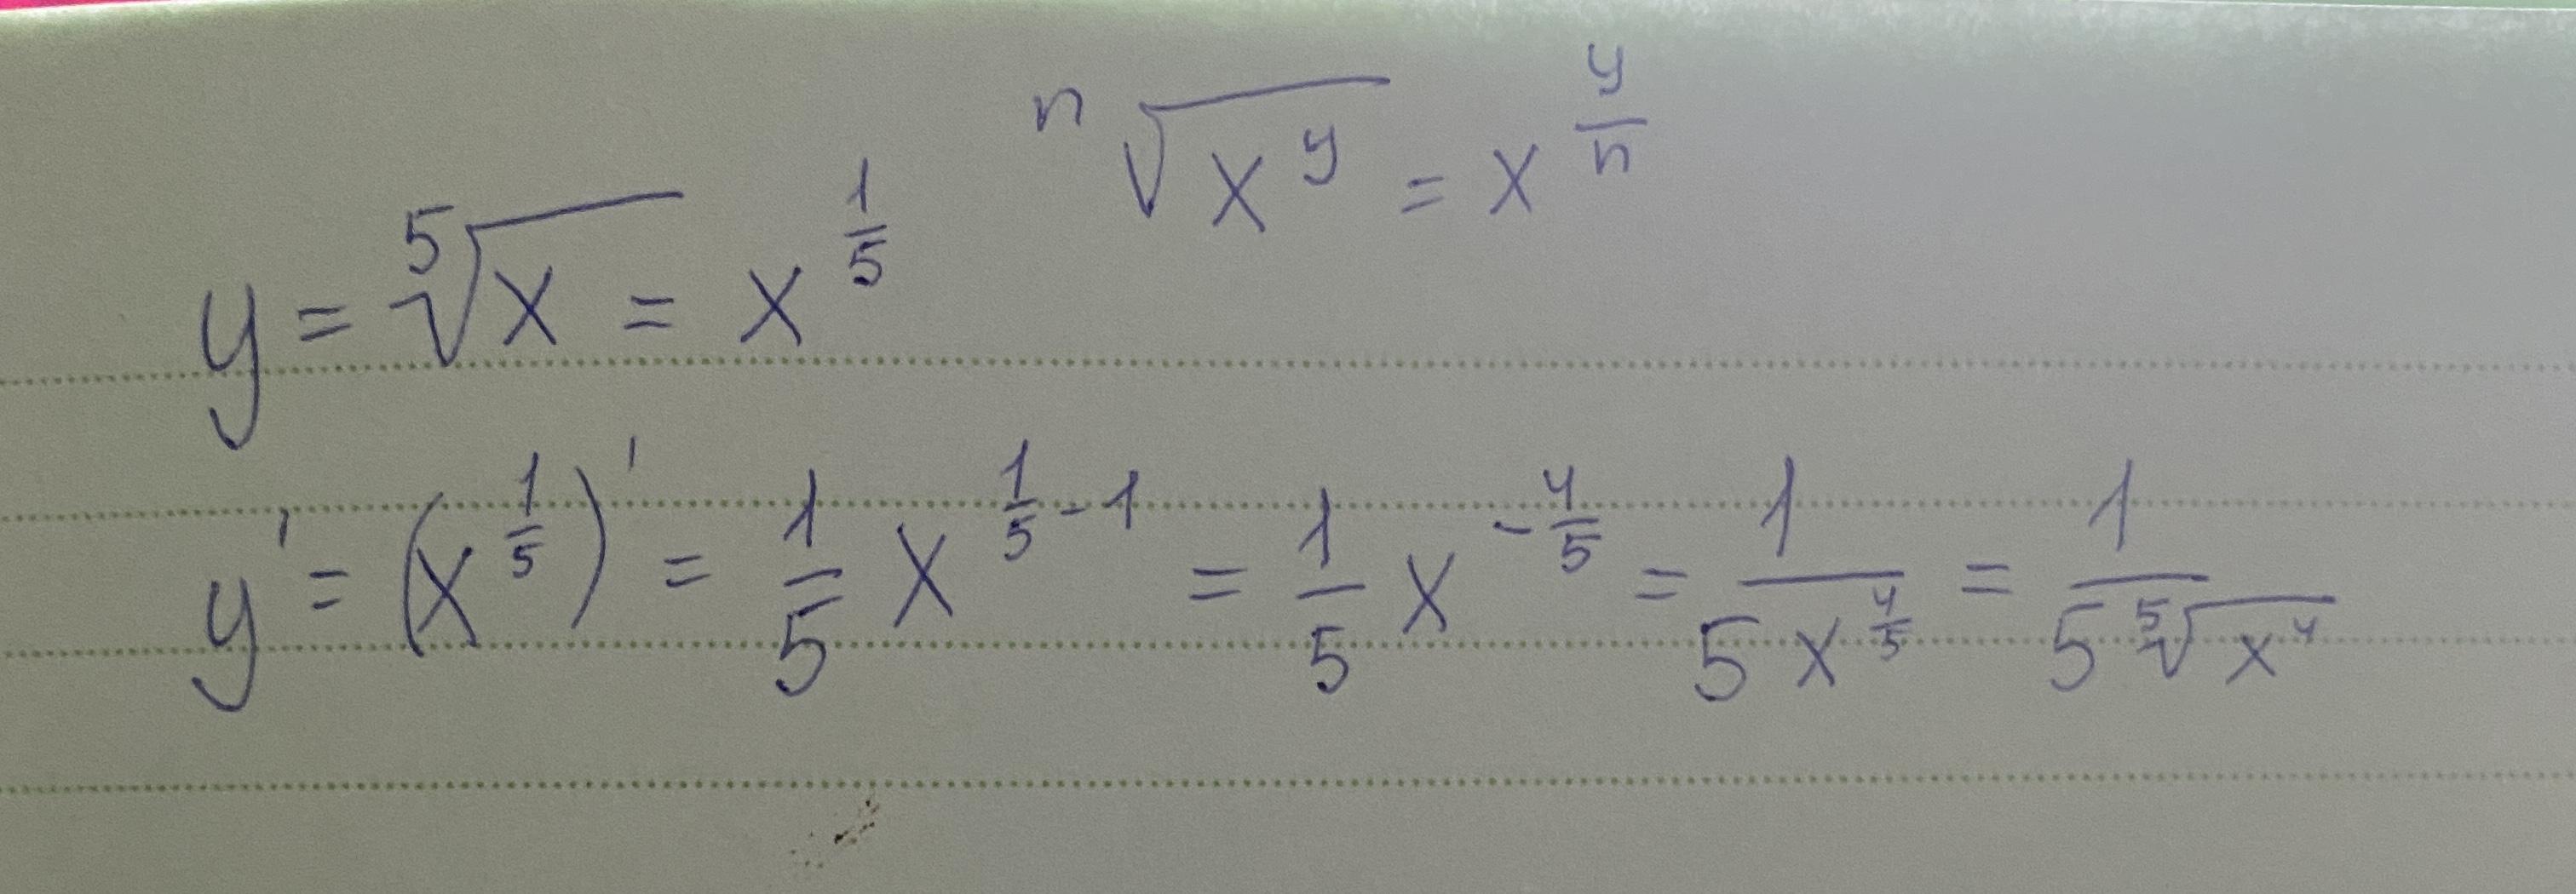 ⁿ√(x^y) = x^(y/n)
y = ⁵√x = x^(1/5)
y' = (x^(1/5))' = 1/5 x^(1/5 - 1) = 1/5 x^(-4/5) = 1/(5x^(4/5)) = 1/(5 ⁵√(x^4))